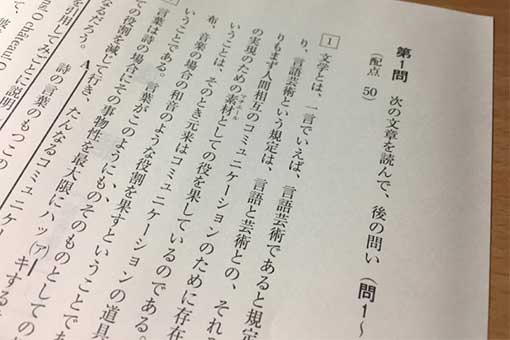 第1問 次の文章を読んで、後の問い(問1～
(配点 50)
1 文学とは、一言でいえば、言語芸術であると規定
り、言語芸術という規定は、言語と芸術との、それ
りもまず人間相互のコミュニケーションのために存在
の実現のための素材としての役を果しているのである。
マチエール
うことは、そのとき元来はコミュニケーションの道具
布、音楽の場合の和音のような役割を果すということであ
いうことである。言葉がこのようにも、そのものとしての
言葉は詩の場合にその事物性を最大限にハッ(ア)キする
ての役割を減じて行き、たんなるコミュニケー
なるだろう。A 詩の言葉のもつこの
を引用してみごとに説明
ô château! O